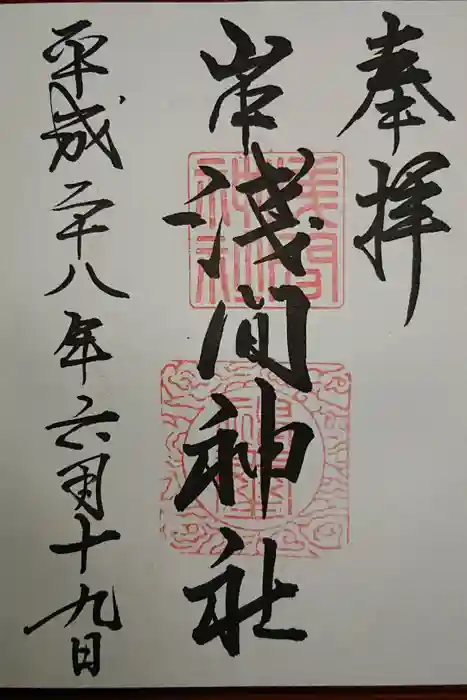 奉拝
淺間神社
平成二十八年六月十九日